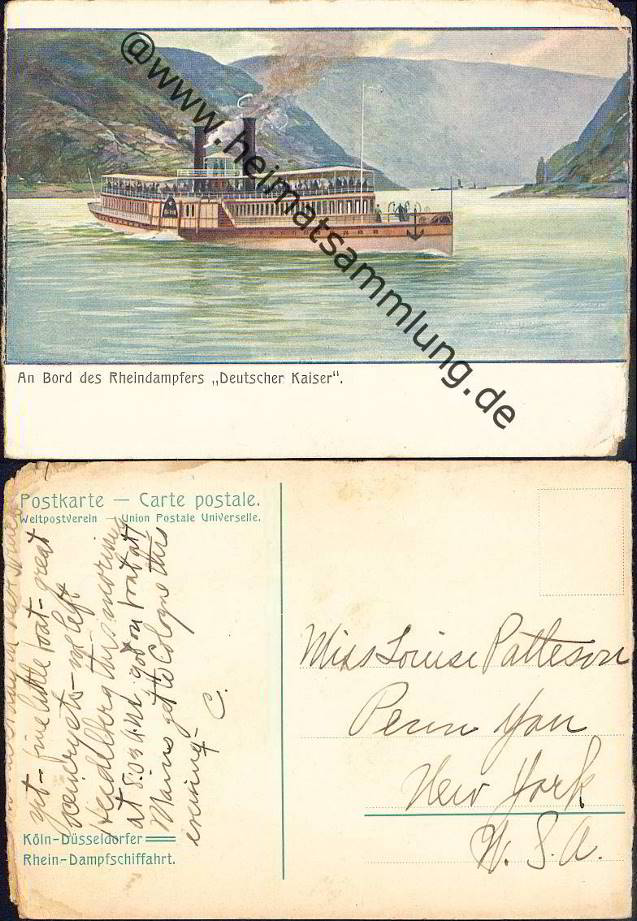 @www.heimatsammlung.de
An Bord des Rheindampfers „Deutscher Kaiser“.
Postkarte — Carte postale.
Weltpostverein — Union Postale Universelle.
yet - fine little boat - great
scenery etc - we left
Heidelberg this morning
at 8:03 and got on boat at
Mainz get to Cologne this
evening - C.
Köln-Düsseldorfer
Rhein-Dampfschiffahrt.
Miss Louise Patteson
Penn Yan
New York
U. S. A.